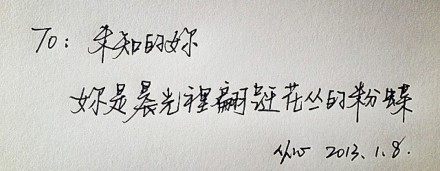 To: 未知的妳
妳是晨光裡翩跹花丛的粉蝶
2013.1.8.